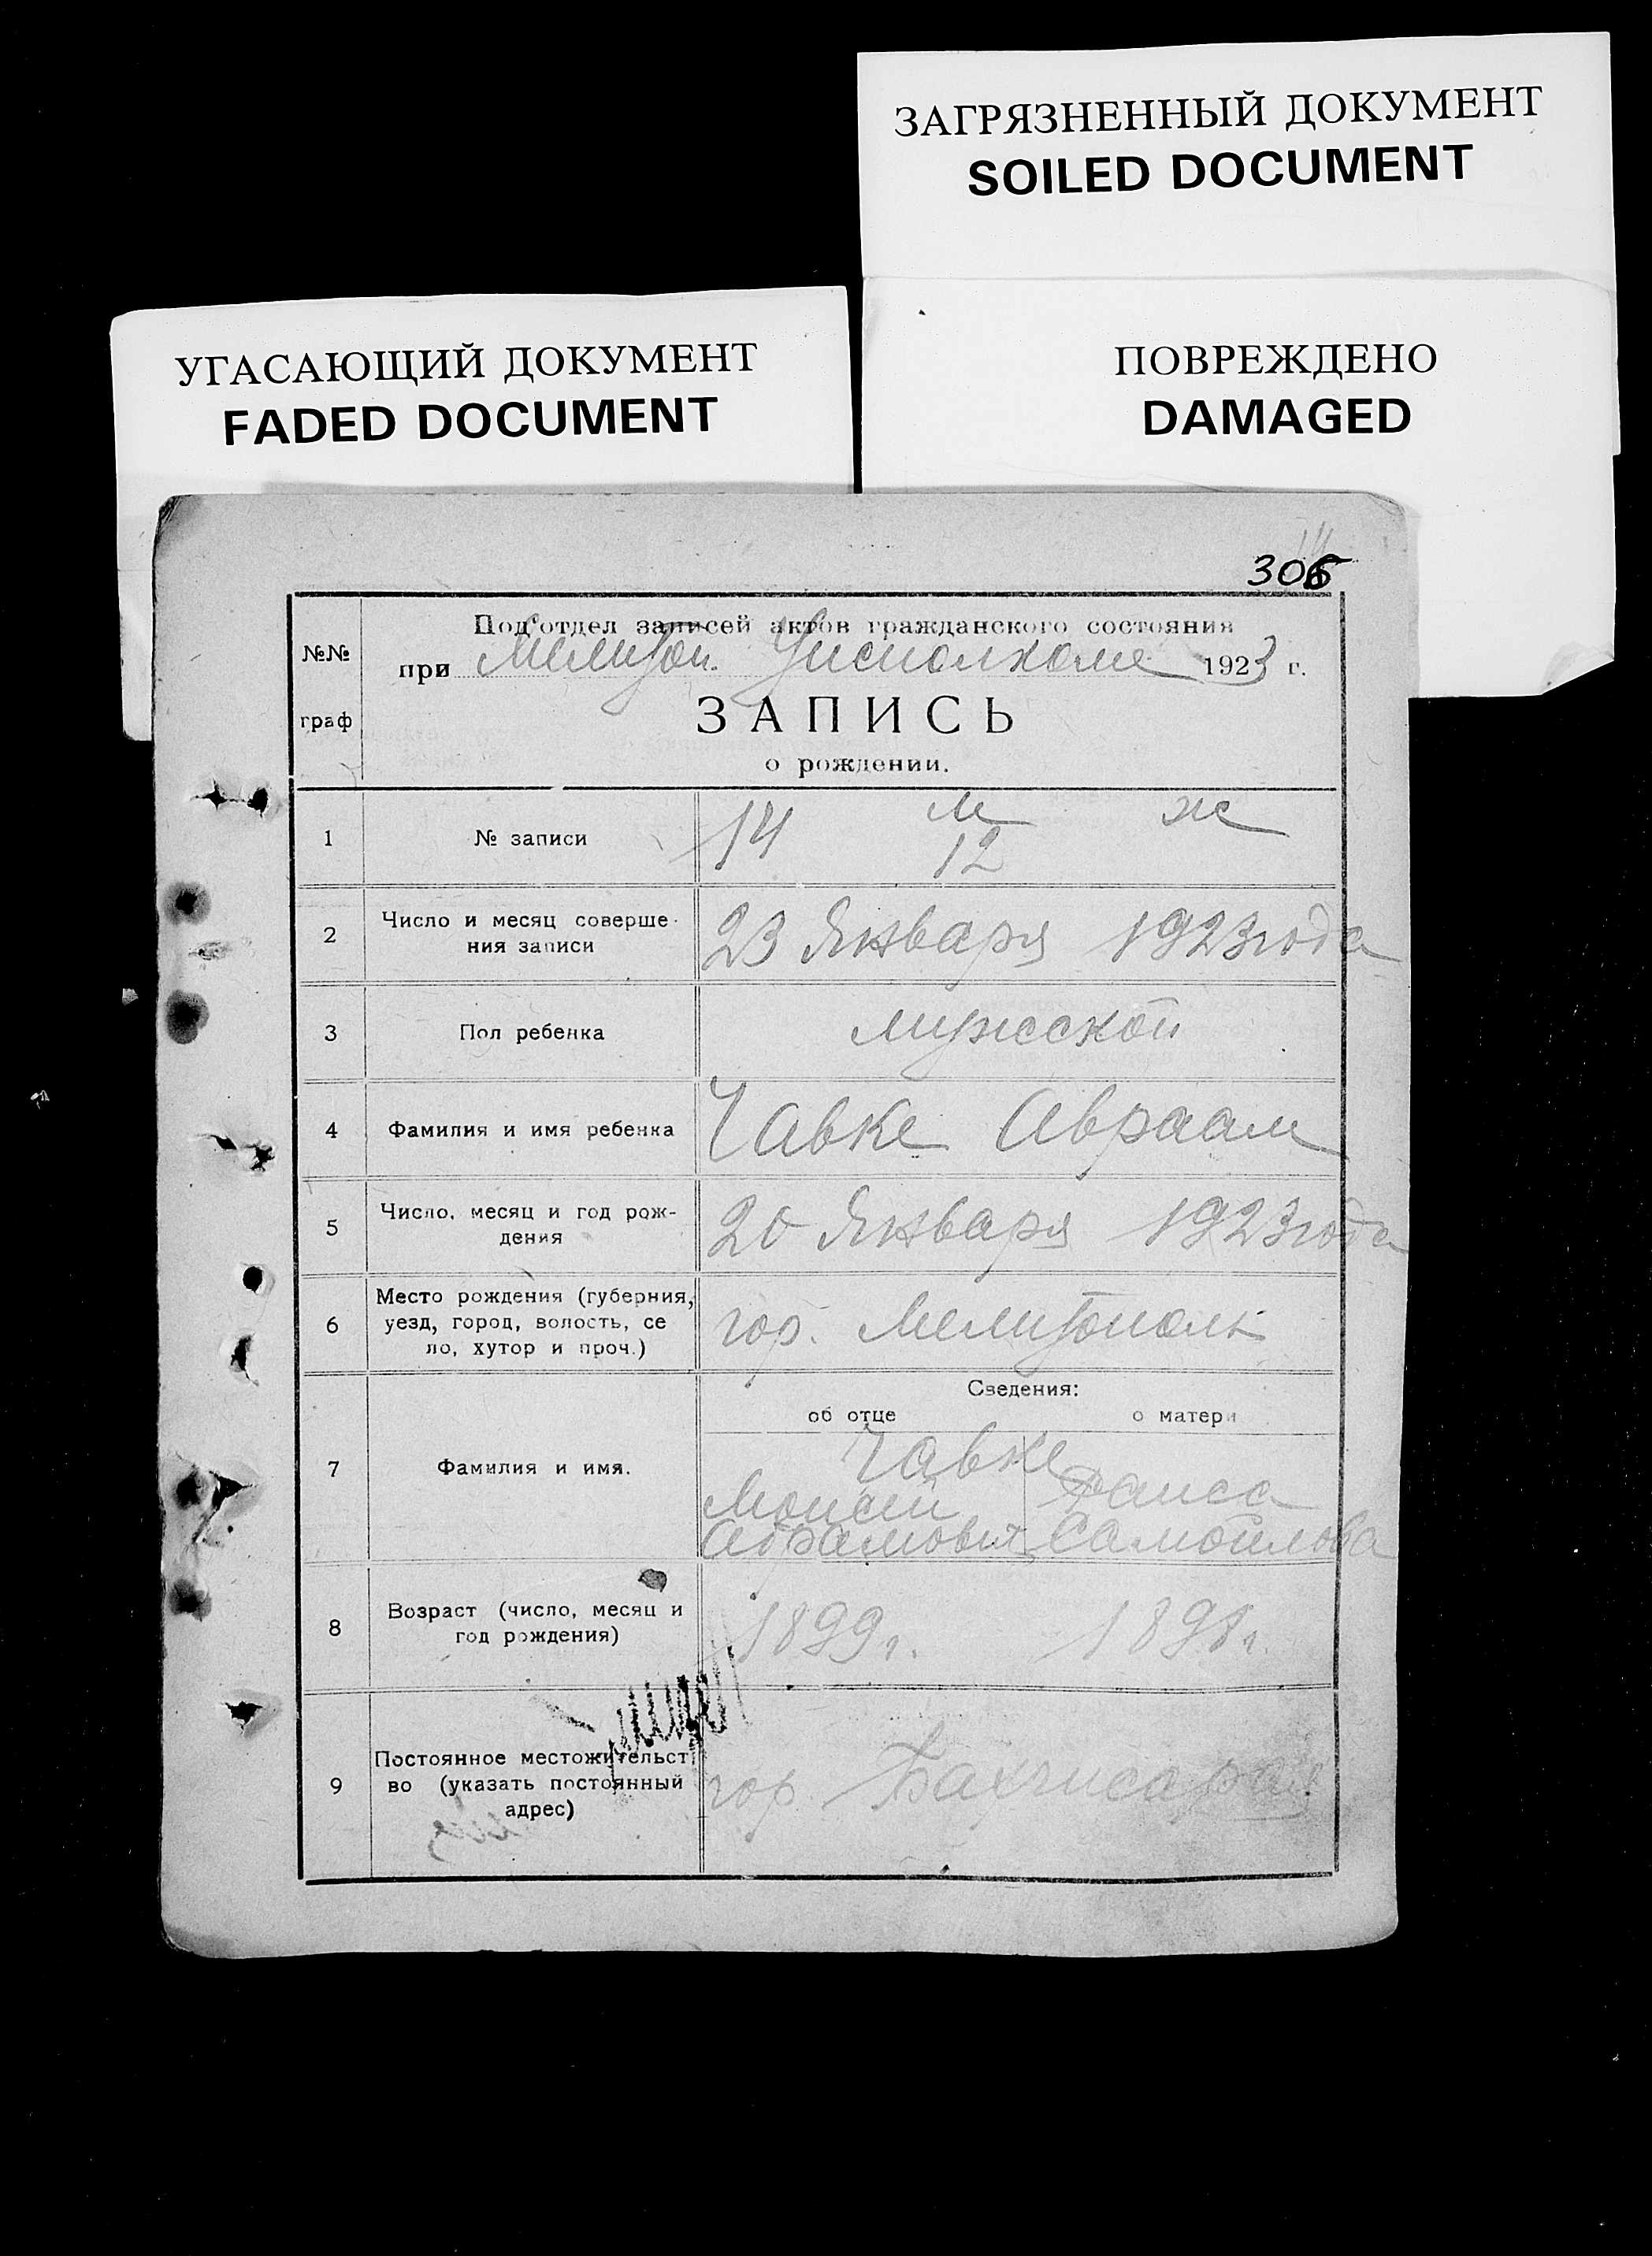 ЗАГРЯЗНЕННЫЙ ДОКУМЕНТ
SOILED DOCUMENT
УГАСАЮЩИЙ ДОКУМЕНТ
FADED DOCUMENT
ПОВРЕЖДЕНО
DAMAGED
Под'отдел записей актов гражданского состояния
№№
при Мелитоп. Уисполкоме 1923 г.
граф
ЗАПИСЬ
о рождении.
м ж
1 № записи 14 12
2 Число и месяц соверше-
ния записи 23 Января 1923 года
3 Пол ребенка мужской
4 Фамилия и имя ребенка Чавке Авраам
5 Число, месяц и год рож-
дения 20 Января 1923 года
Место рождения (губерния,
6 уезд, город, волость, се гор. Мелитополь
ло, хутор и проч.)
Сведения:
об отце о матери
7 Фамилия и имя. Чавке
Моисей Раиса
Абрамович Самойлова
8 Возраст (число, месяц и
год рождения) 1899 г. 1898 г.
Постоянное местожительст
9 во (указать постоянный гор. Бахчисарай
адрес)